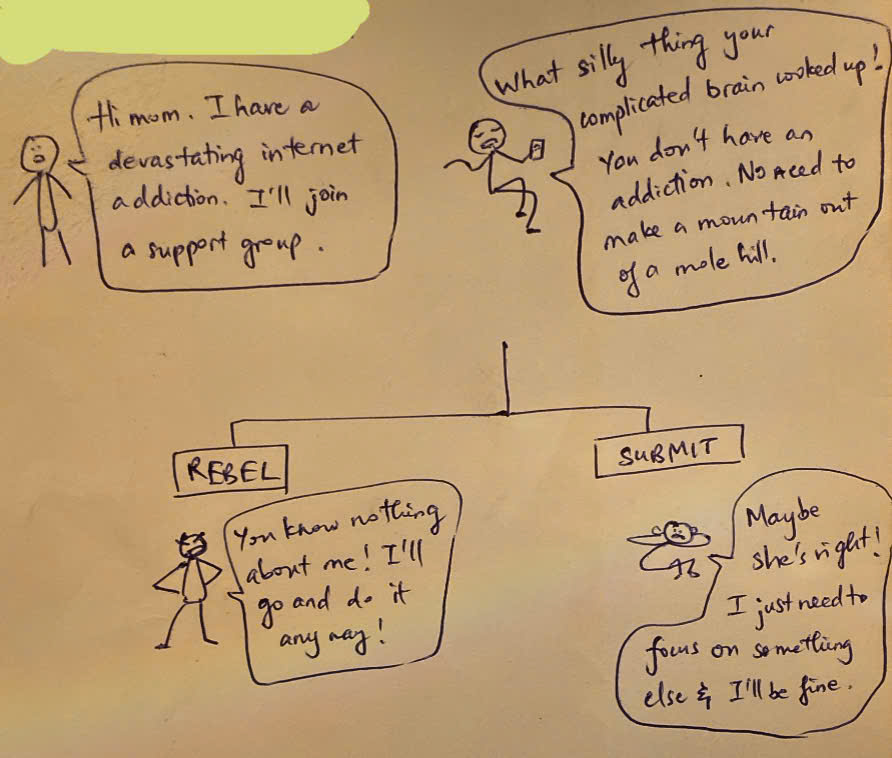 Hi mom. I have a
devastating internet
addiction. I'll join
a support group.
What silly thing your
complicated brain cooked up!
You don't have an
addiction. No need to
make a mountain out
of a mole hill.
REBEL
You know nothing
about me! I'll
go and do it
any way!
SUBMIT
Maybe
she's right!
I just need to
focus on something
else & I'll be fine.